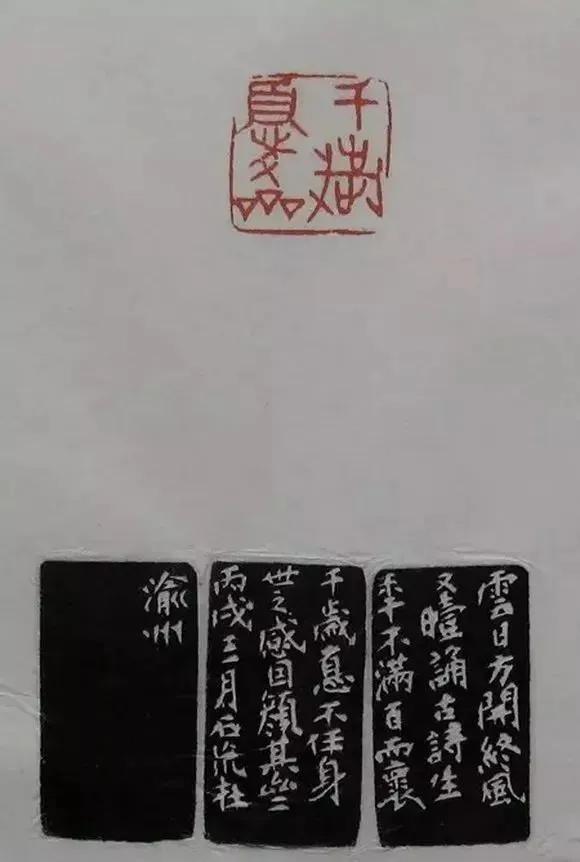 千歲
憂齋
雲日方開終風
又曀誦古詩生
年不滿百而褱
千歲憂不任身
世之感因顏其亝
丙戌三月
渝州